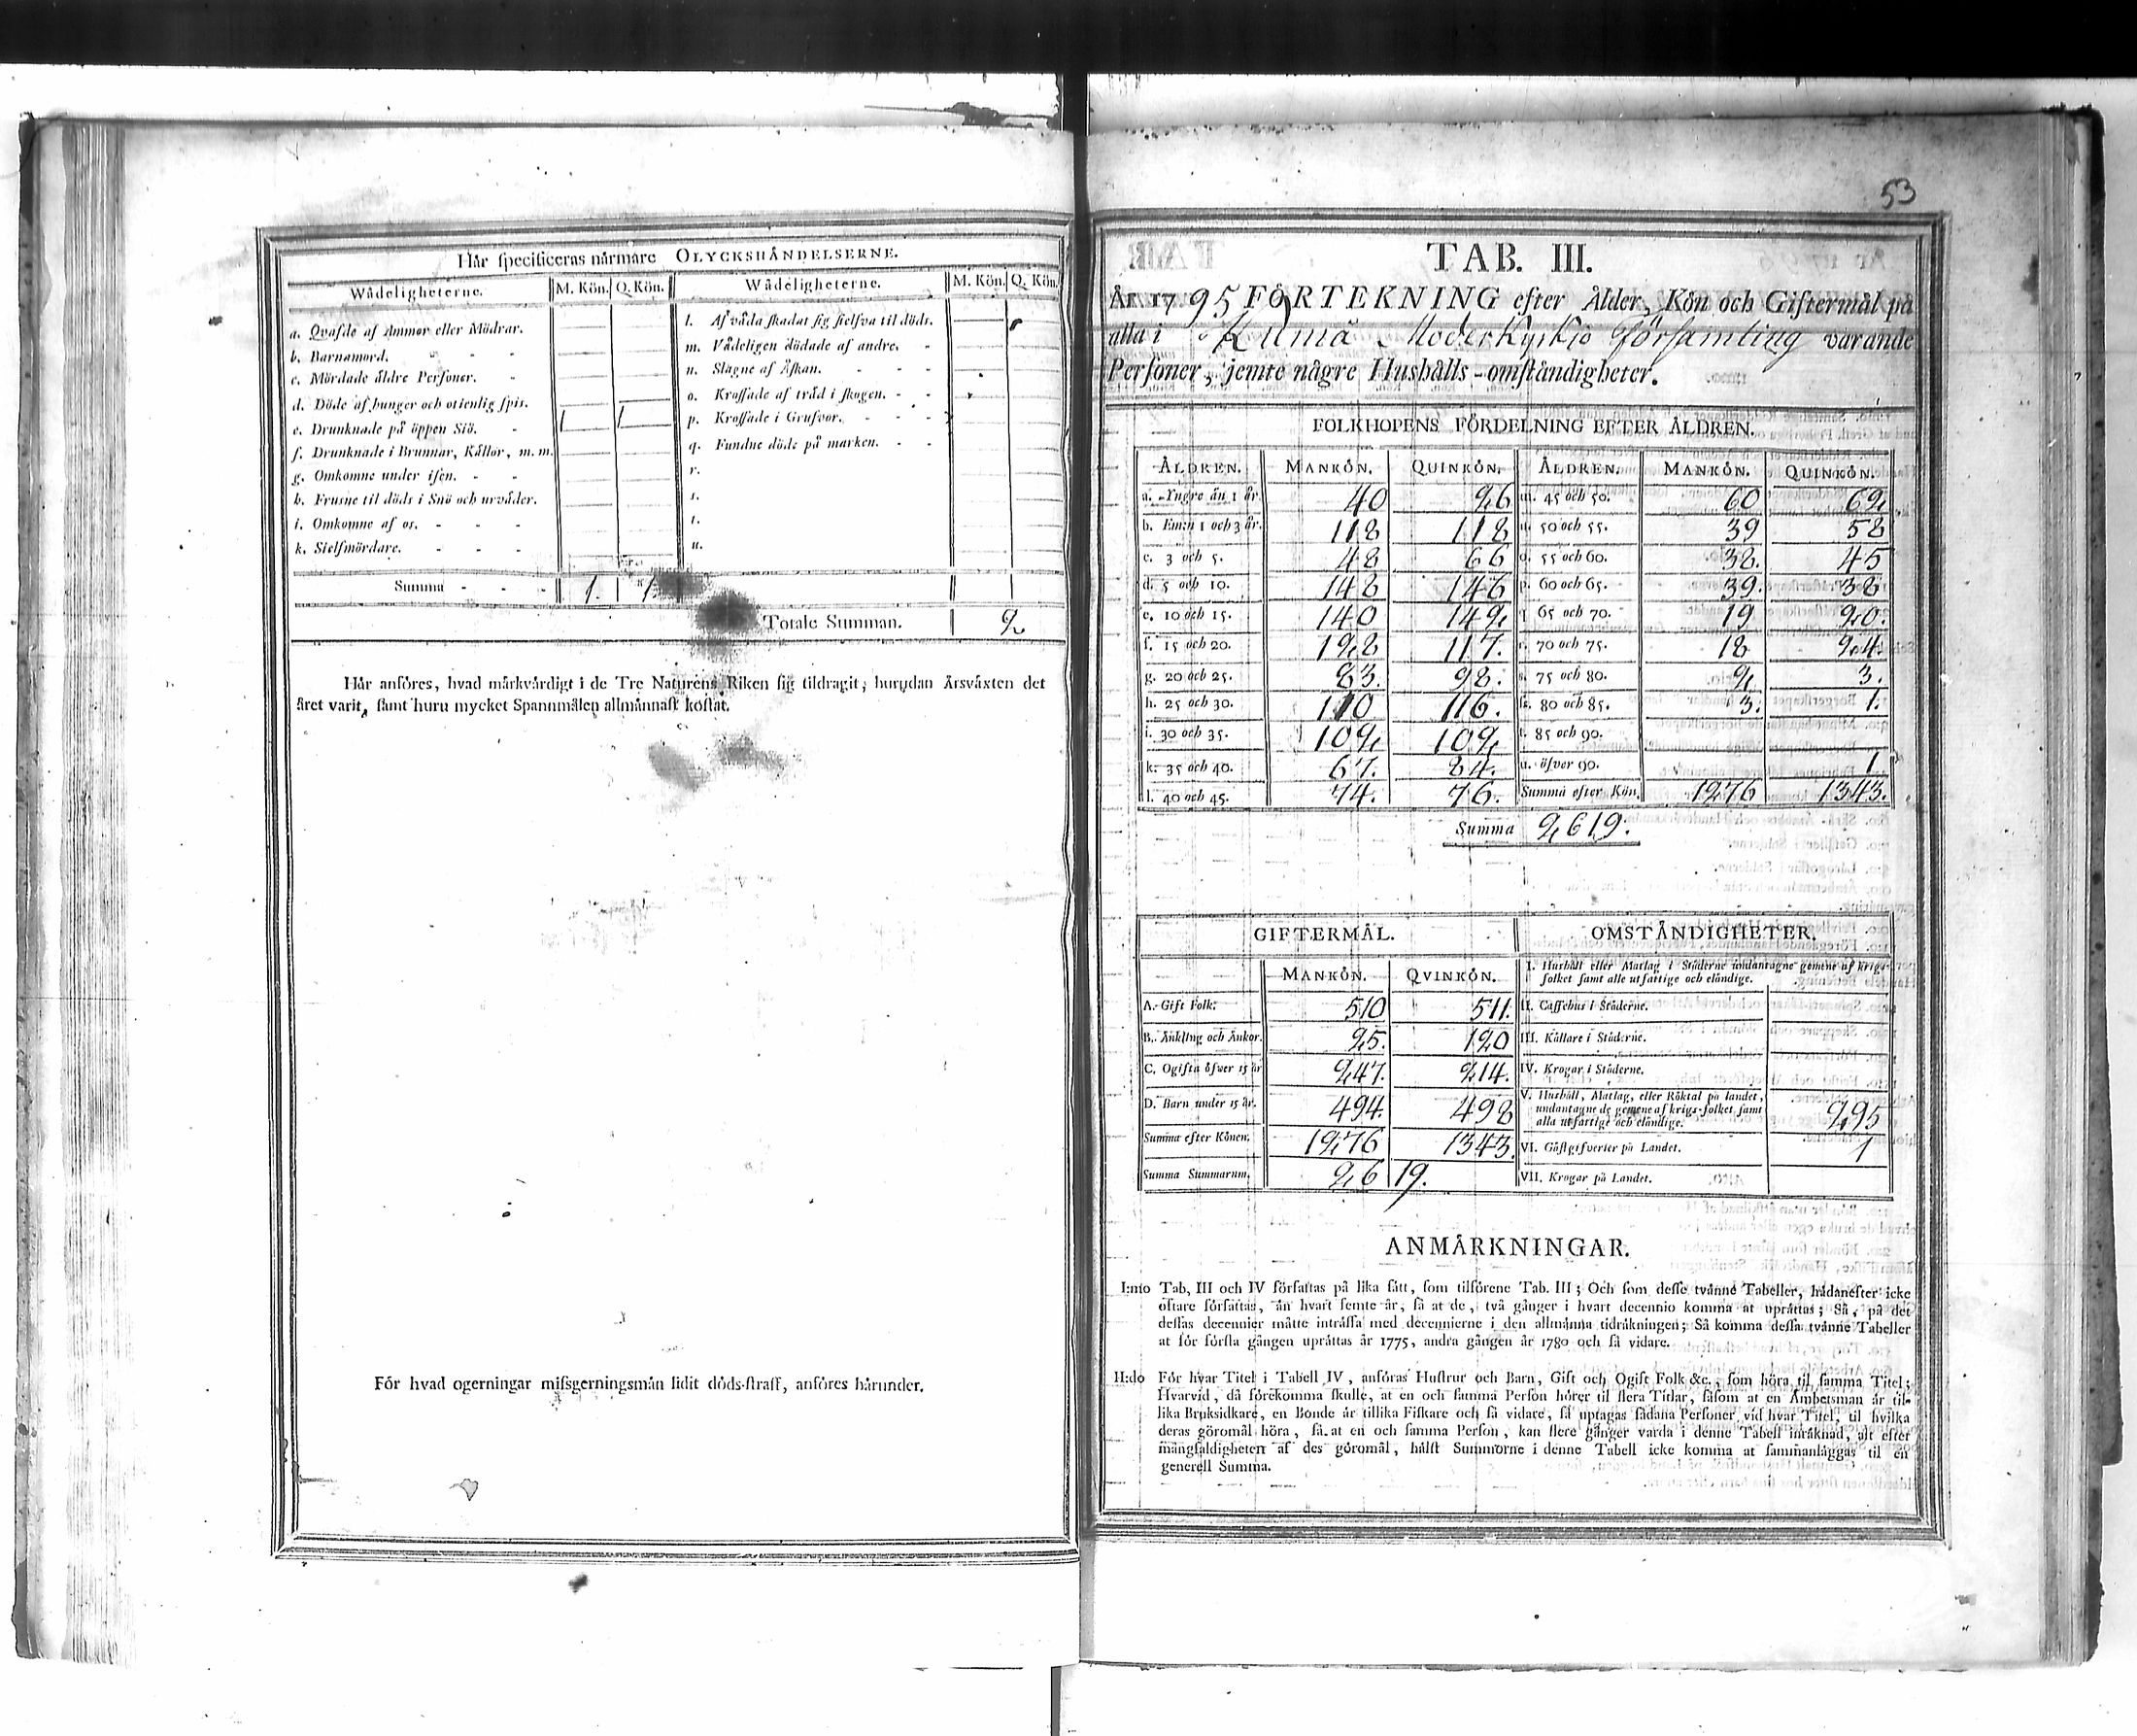 Här specificeras närmare OLYCKSHÄNDELSERNE.
Wådeligheterne. M. Kön. Q. Kön. Wådeligheterne. M. Kön. Q. Kön.
a. Qvafde af Ammor eller Mödrar. l. Af våda skadat sig sielfva til döds.
b. Barnamord. m. Vådeligen dödade af andre.
c. Mördade äldre Personer. n. Slagne af Åskan.
d. Döde af hunger och otienlig spis. o. Krossade af träd i skogen.
e. Drunknade på öppen Siö. 1 1 p. Krossade i Grufvor.
f. Drunknade i Brunnar, Källor, m. m. q. Fundne döde på marken.
g. Omkomne under isen. r.
h. Frusne til döds i Snö och urväder. s.
i. Omkomne af os. t.
k. Sielfmördare. u.
Summa 1. 1.
Totale Summan. 2
Här anföres, hvad märkvärdigt i de Tre Naturens Riken sig tildragit; hurudan Årsväxten det
året varit, samt huru mycket Spannmålen allmännast kostat.
För hvad ogerningar missgerningsmän lidit döds-straff, anföres härunder.
53
TAB. III.
År 1795 FÖRTEKNING efter Ålder, Kön och Giftermål på
alla i Kumå Moderkyrkio Församling varande
Personer, jemte någre Hushålls-omständigheter.
FOLKHOPENS FÖRDELNING EFTER ÅLDREN.
ÅLDREN. MANKÖN. QUINKÖN. ÅLDREN. MANKÖN. QUINKÖN.
a. Yngre än 1 år. 40 26 m. 45 och 50. 60 62
b. Emen 1 och 3 år. 118 118 n. 50 och 55. 39 58
c. 3 och 5. 48 66 o. 55 och 60. 38. 45
d. 5 och 10. 148 146 p. 60 och 65. 39. 38
e. 10 och 15. 140 142 q 65 och 70. 19 20.
f. 15 och 20. 128 117. r. 70 och 75. 18 24.
g. 20 och 25. 83. 98. s. 75 och 80. 2 3.
h. 25 och 30. 110 116. ss. 80 och 85. 3. 1.
i. 30 och 35. 102 102 t. 85 och 90.
k. 35 och 40. 67. 84. u. öfver 90. 1
l. 40 och 45. 74. 76. Summa efter Kön. 1276 1343.
Summa 2619.
GIFTERMÅL. OMSTÄNDIGHETER.
MANKÖN. QVINKÖN. I. Hushåll eller Matlag i Städerne undantagne gemene af krigs-
folket samt alle utfattige och eländige.
A. Gift Folk. 510 511. II. Caffehus i Städerne.
B. Änkling och Änkor. 25. 120 III. Källare i Städerne.
C. Ogifta öfwer 15 år 247. 214. IV. Krogar i Städerne.
D. Barn under 15 år. 494. 498 V. Hushåll, Matlag, eller Röktal på landet,
undantagne de gemene af krigs-folket samt
alla utfattige och eländige. 295
Summa efter Könen. 1276 1343. VI. Gästgifverier på Landet. 1
Summa Summarum. 2619. VII. Krogar på Landet.
ANMÄRKNINGAR.
I:mo Tab. III och IV författas på lika sätt, som tilförene Tab. III; Och som desse tvänne Tabeller, hädanefter icke
oftare författas, än hvart femte år, så at de, två gånger i hvart decennio komma at uprättas; Så, på det
dessas decennier måtte inträffa med decennierne i den allmänna tidräkningen; Så komma dessa tvänne Tabeller
at för första gången uprättas år 1775, andra gången år 1780 och så vidare.
II:do För hvar Titel i Tabell IV, anföras Hustrur och Barn, Gift och Ogift Folk &c., som höra til samma Titel;
Hvarvid, då förekomma skulle, at en och samma Person hörer til flera Titlar, såsom at en Ämbetsman är til-
lika Bruksidkare, en Bonde är tillika Fiskare och så vidare, så uptagas sådana Personer vid hvar Titel, til hvilka
deras göromål höra, så at en och samma Person, kan flere gånger varda i denne Tabell inräknad, alt efter
mångfaldigheten af des göromål, hälst Summorne i denne Tabell icke komma at sammanläggas til en
generell Summa.